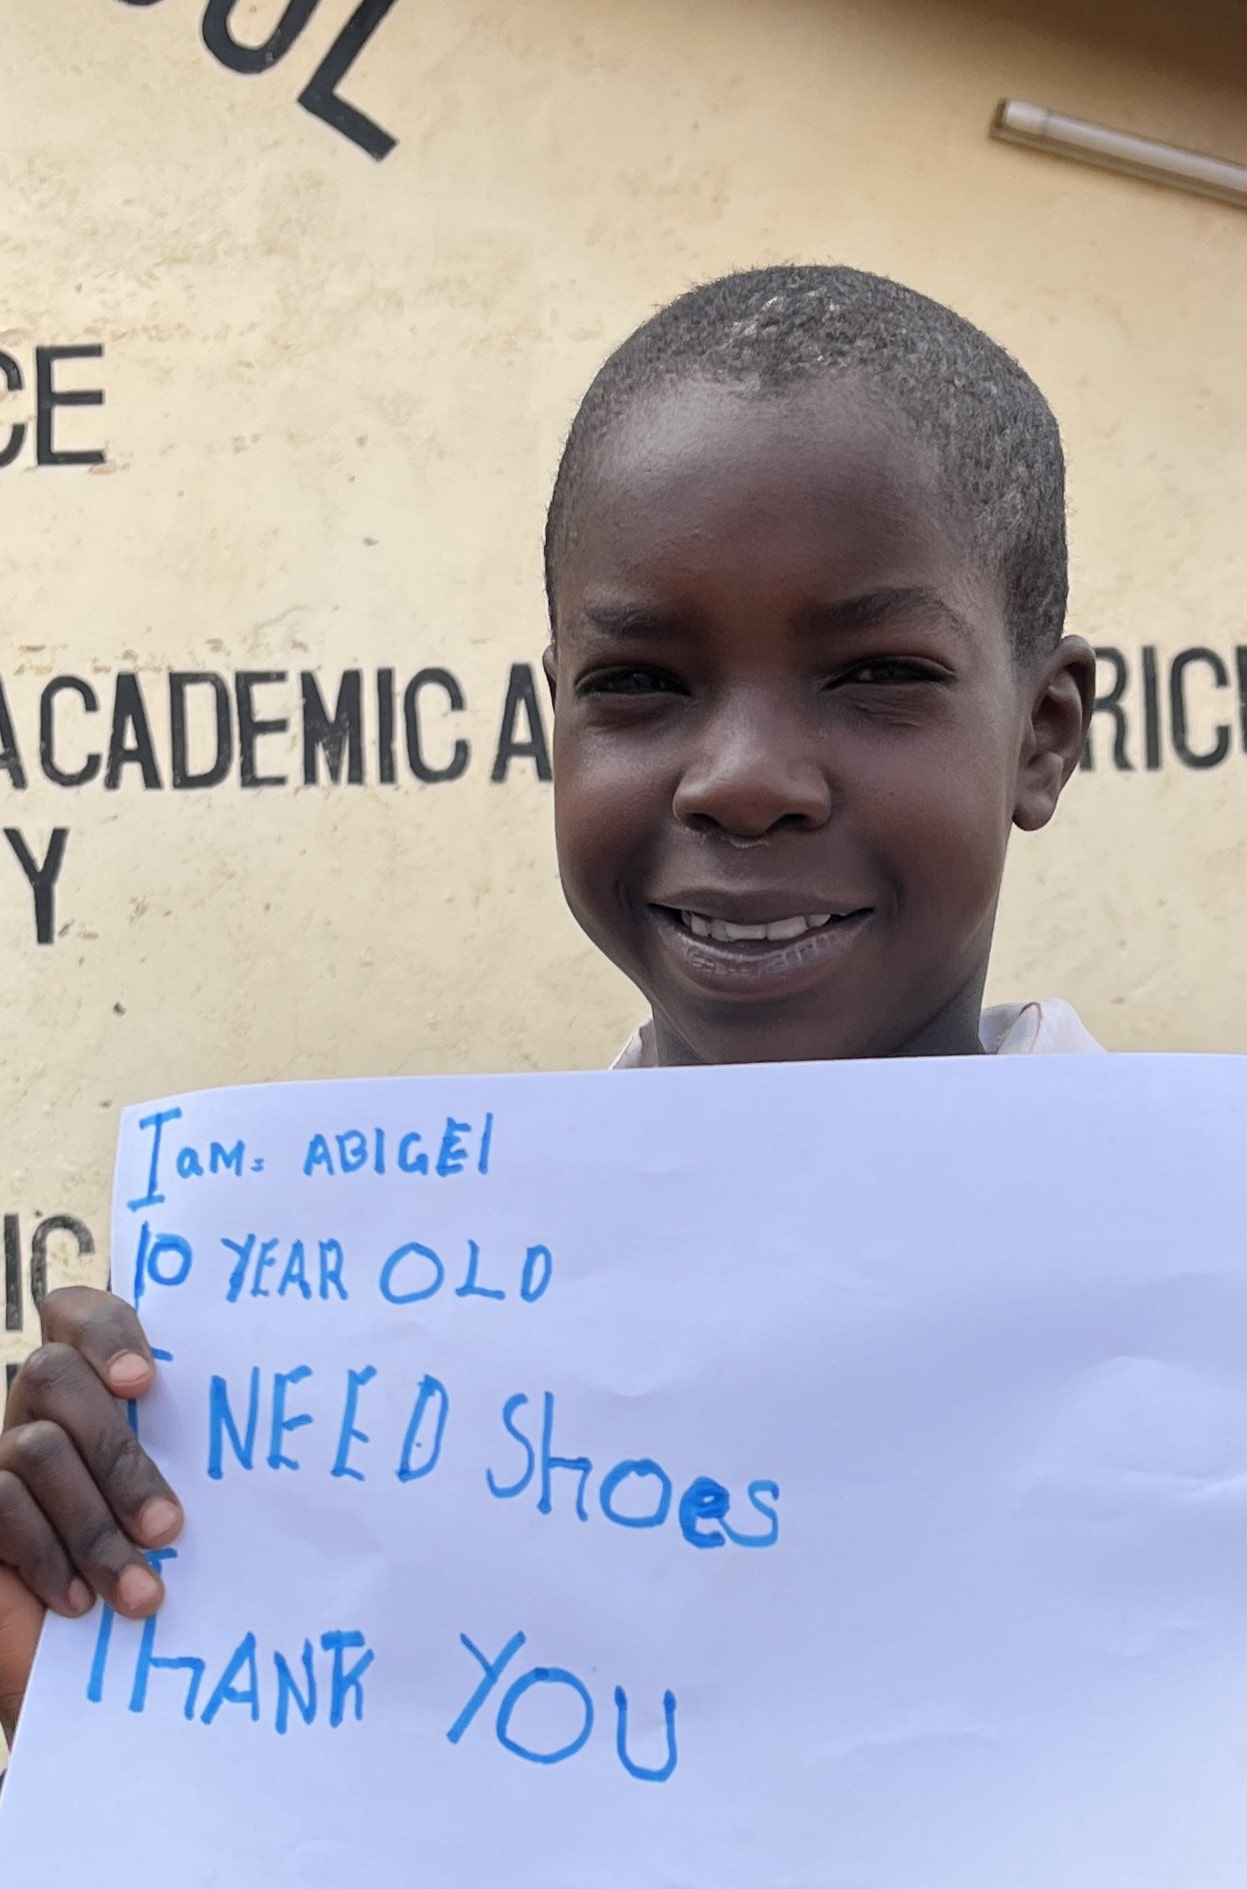 OOL
CE
ACADEMIC A RICU
Y
IC
I am= ABIGEl
10 YEAR OLD
I NEED Shoes
ThANK YOU